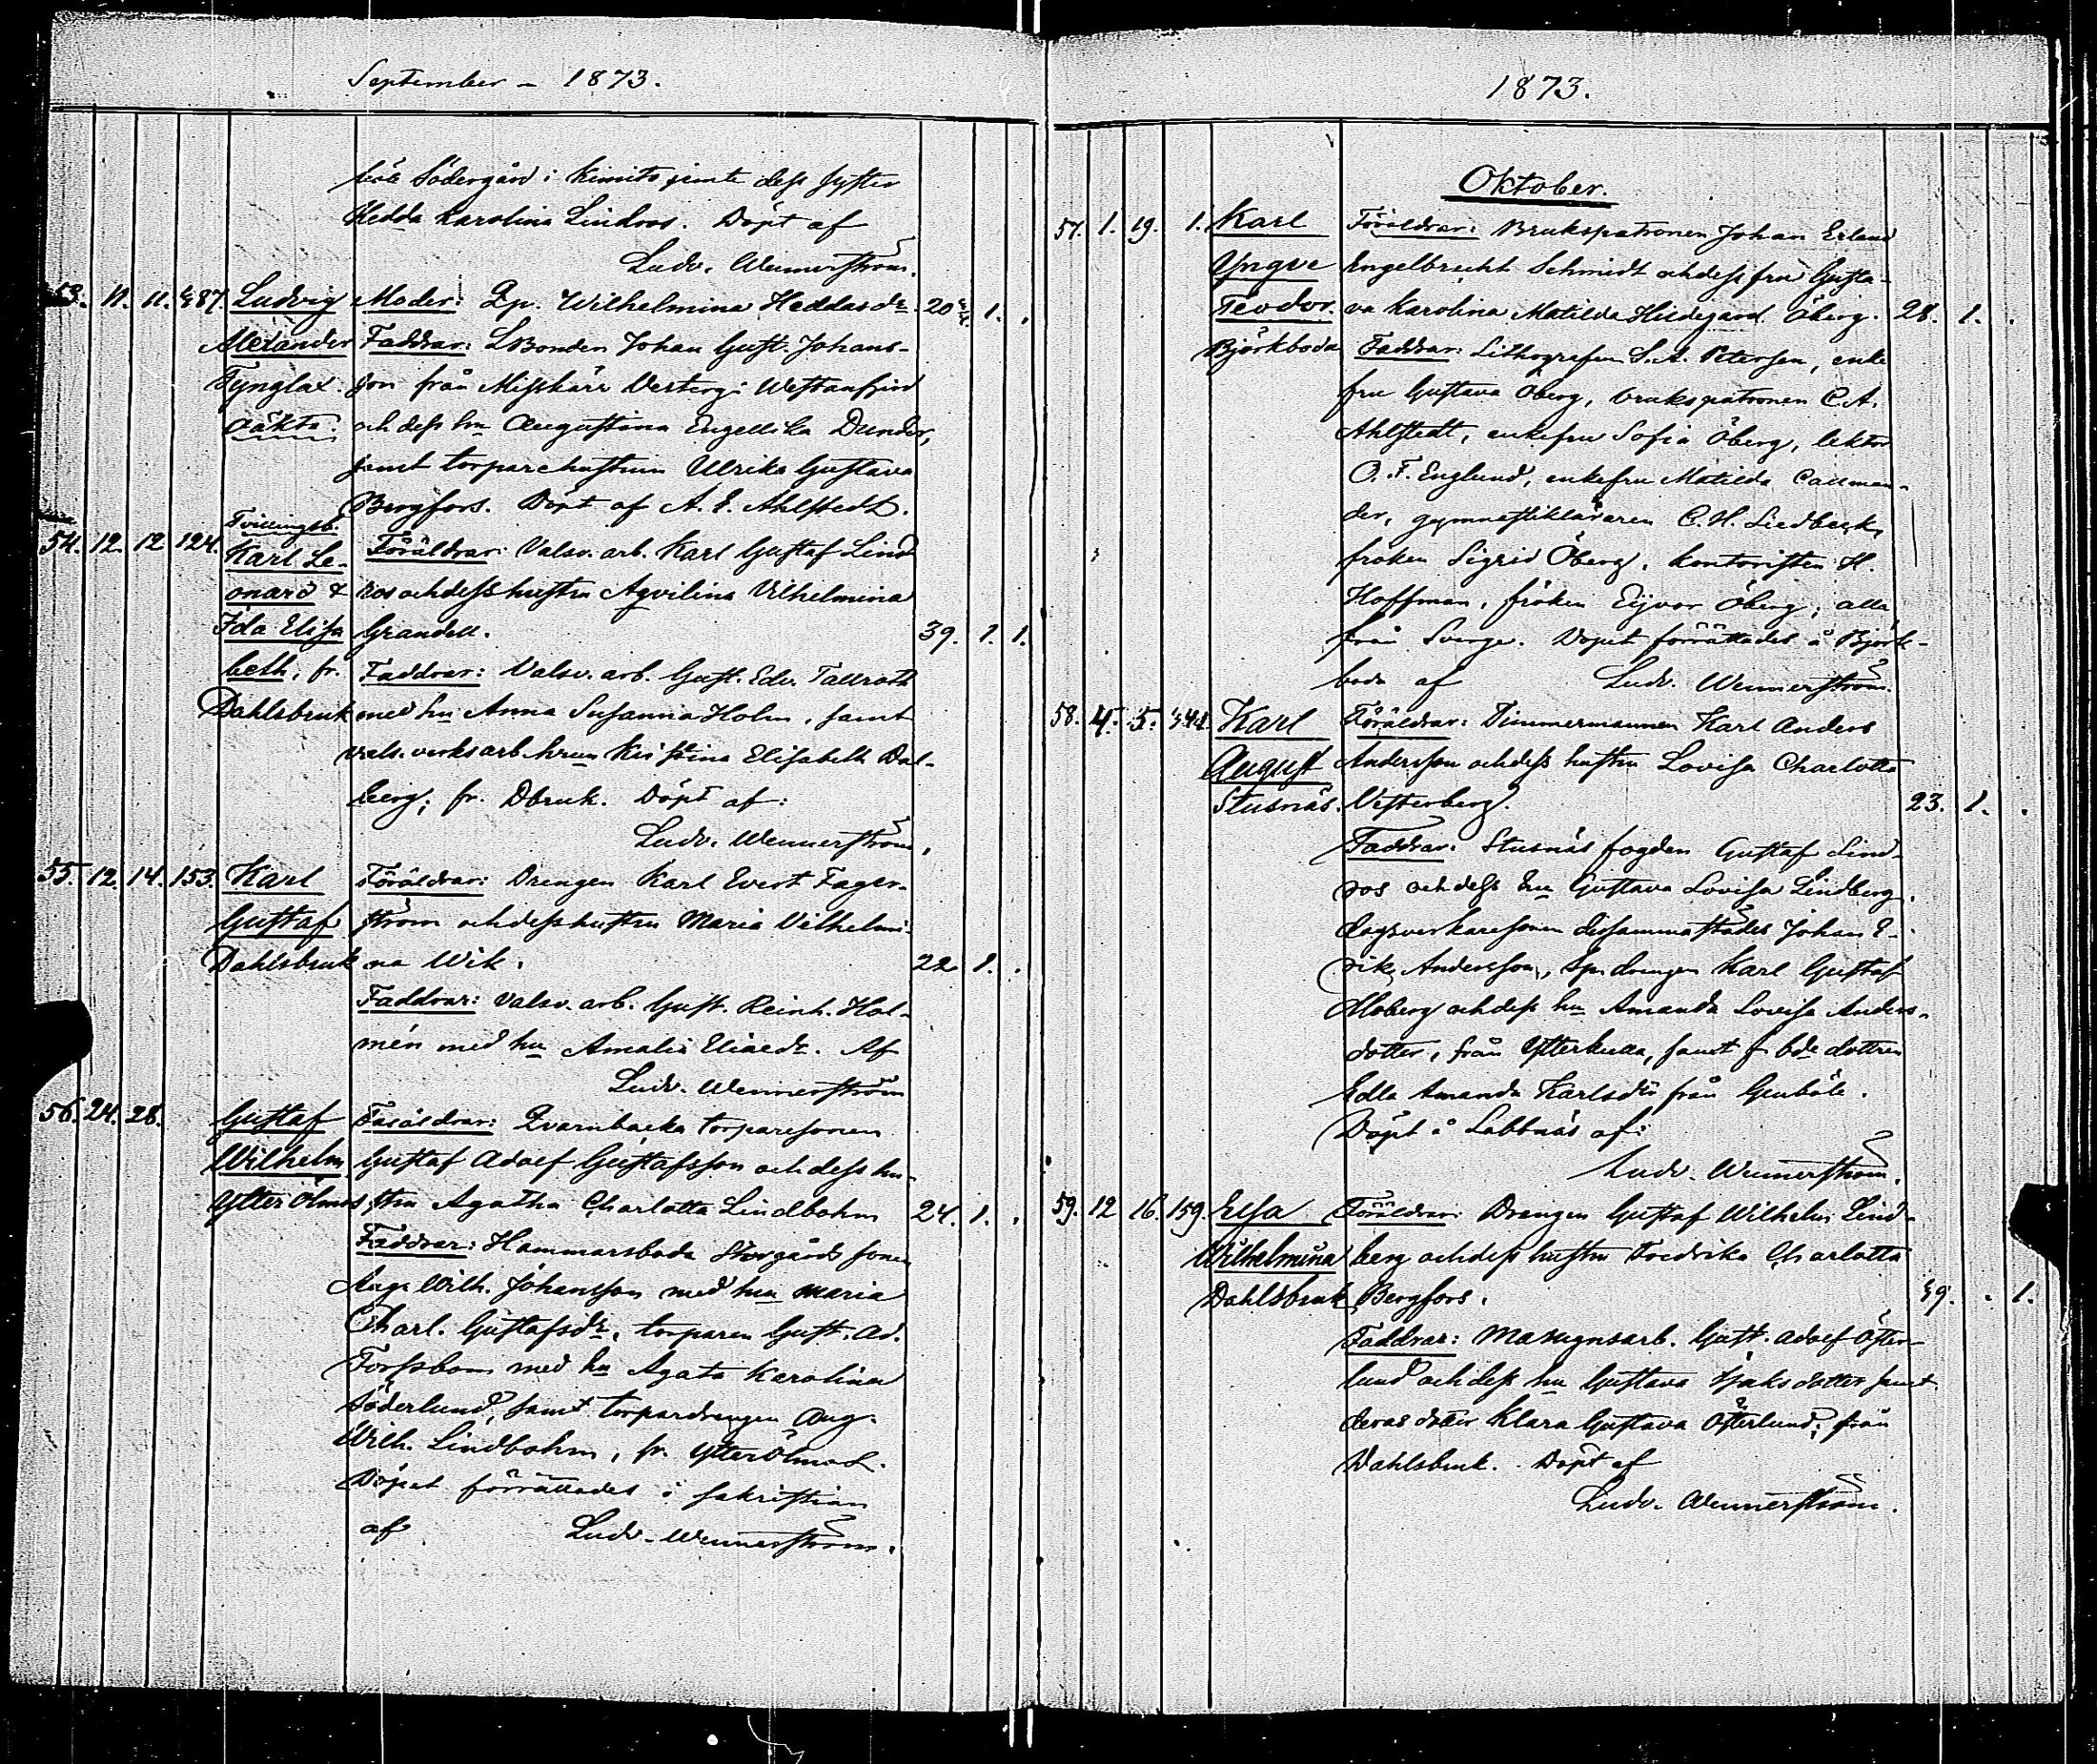 September - 1873.
böle Södergård i Kimito jemte dess syster
Hedda Karolina Lindroos. Döpt af
Ludv. Wennerström.
53. 11. 11. 87. Ludvig Moder: Qp. Wilhelmina Heddasdr. 20 1. .
Alexander Faddrar: LBonden Johan Gust. Johans-
Tynglax. son från Misskärr Vesterg. i Westanfjerd
oäkta. och dess hu Augustina Engellika Dunder,
samt torparehustrun Ulrika Gustava
Bergfors. Döpt af A. E. Ahlstedt.
Tvillingsb.
54. 12. 12 124. Karl Le- Föräldrar: Valsv. arb. Karl Gustaf Lind
onard & roos och dess hustru Aqvilina Vilhelmina
Ida Elisa Grandell. 39. 1. 1.
beth, fr. Faddrar: Valsv. arb. Gust. Edv. Tallroth
Dahlsbruk med hu Anna Susanna Holm, samt
vals. verksarb. hrun Kristina Elisabeth Dal-
berg, fr. Dbruk. Döpt af:
Ludv. Wennerström.
55. 12. 14. 153. Karl Föräldrar: Drengen Karl Evert Fager-
Gustaf ström och dess hustru Maria Vilhelmi-
Dahlsbruk na Wik. 22 1. .
Faddrar: Valsv. arb. Gust. Reinh. Hol-
mén med hu Amalia Eliaedr. Af
Ludv. Wennerström
56. 24. 28. Gustaf Föräldrar: Qvarnbacka torparesonen
Wilhelm Gustaf Adolf Gustafsson och dess hu-
Ytter Ölmos stru Agatha Charlotta Lindbohm 24. 1. .
Faddrar: Hammarsboda Storgårds sonen
Aug. Wilh. Johansson med hu Maria
Charl. Gustafsdr, torparen Gust. Ad.
Forssbom med hu Agata Karolina
Söderlund, samt torpardrengen Aug.
Wilh. Lindbohm, fr. Ytterölmos.
Döpet förrättades i sakristian
af Ludv. Wennerström.
1873.
Oktober.
57. 1. 19. 1. Karl Föräldrar: Brukspatronen Johan Erland
Yngve Engelbrecht Schmidt och dess fru Gusta-
Teodor. va Karolina Matilda Hildegard Öberg. 28. 1. .
Björkboda Faddrar: Lithografen S. A. Petersen, enke
fru Gustava Öberg, brukspatronen C. A.
Ahlstedt, enkefru Sofia Öberg, lektor
O. F. Englund, enkefru Matilda Callman-
der, gymnastikläraren C. H. Liedbeck,
fröken Sigrid Öberg, kontoristen H.
Hoffman, fröken Eyvor Öberg, alla
från Sverge. Döpet förrättades å Björk-
boda af Ludv. Wennerström.
58. 4. 5. Karl Föräldrar: Timmermannen Karl Anders
August Andersson och dess hustru Lovisa Charlotta
Stusnäs. Vesterberg. 23. 1. .
Faddrar: Stusnäs fogden Gustaf Lind-
ros och dess hu Gustava Lovisa Lindberg,
dagsverkaresonen dersammastädes Johan E-
rik Andersson, Sp. drengen Karl Gustaf
Moberg och dess hu Amanda Lovisa Anders-
dotter, från Ytterkulla, samt f bde dottren
Edla Amanda Karlsdr från Genböle.
Döpt å Labbnäs af:
Ludv. Wennerström.
59. 12 16. 159. Elsa Föräldrar: Drengen Gustaf Wilhelm Lind-
Wilhelmina berg och dess hustru Fredrika Charlotta
Dahlsbruk Bergfors. 39. . 1.
Faddrar: Masugnsarb. Gust. Adolf Öster-
lund och dess hu Gustava Isaksdotter samt
deras dotter Klara Gustava Österlund, från
Dahlsbruk. Döpt af
Ludv. Wennerström.